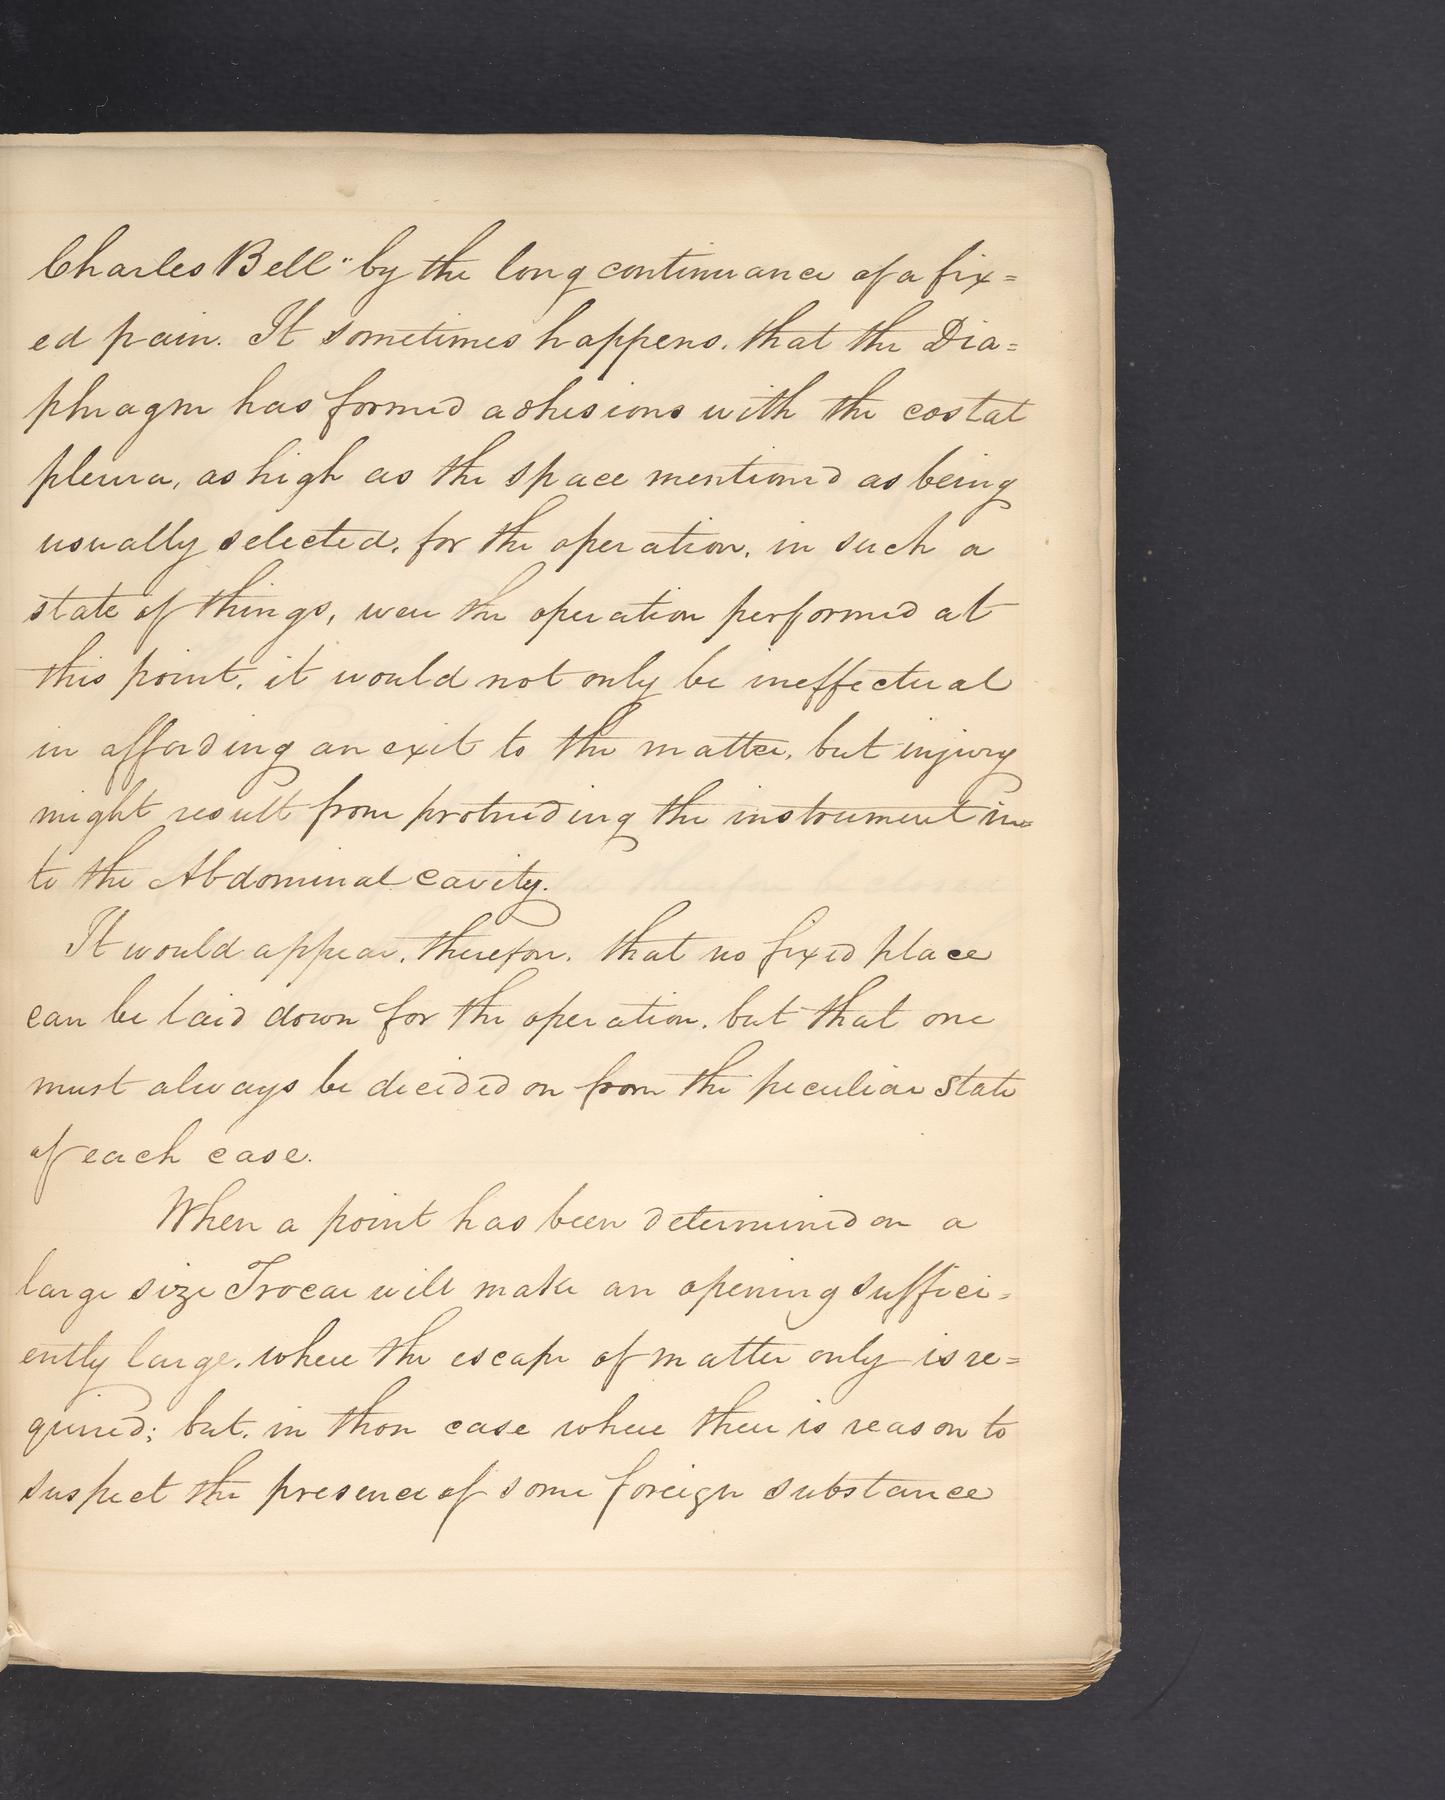 Charles Bell" by the long continuance of a fix=
ed pain. It sometimes happens, that the Dia=
phragm has formed adhesions with the costal
pleura, as high as the space mentioned as being
usually selected, for the operation, in such a
state of things, were the operation performed at
this point, it would not only be ineffectual
in affording an exit to the matter, but injury
might result from protruding the instrument in=
to the Abdominal cavity.
It would appear, therefore, that no fixed place
can be laid down for the operation, but that one
must always be decided on from the peculiar state
of each case.
When a point has been determined on a
large size Trocar will make an opening suffici=
ently large, where the escape of matter only is re=
quired; but, in those case where there is reason to
suspect the presence of some foreign substance